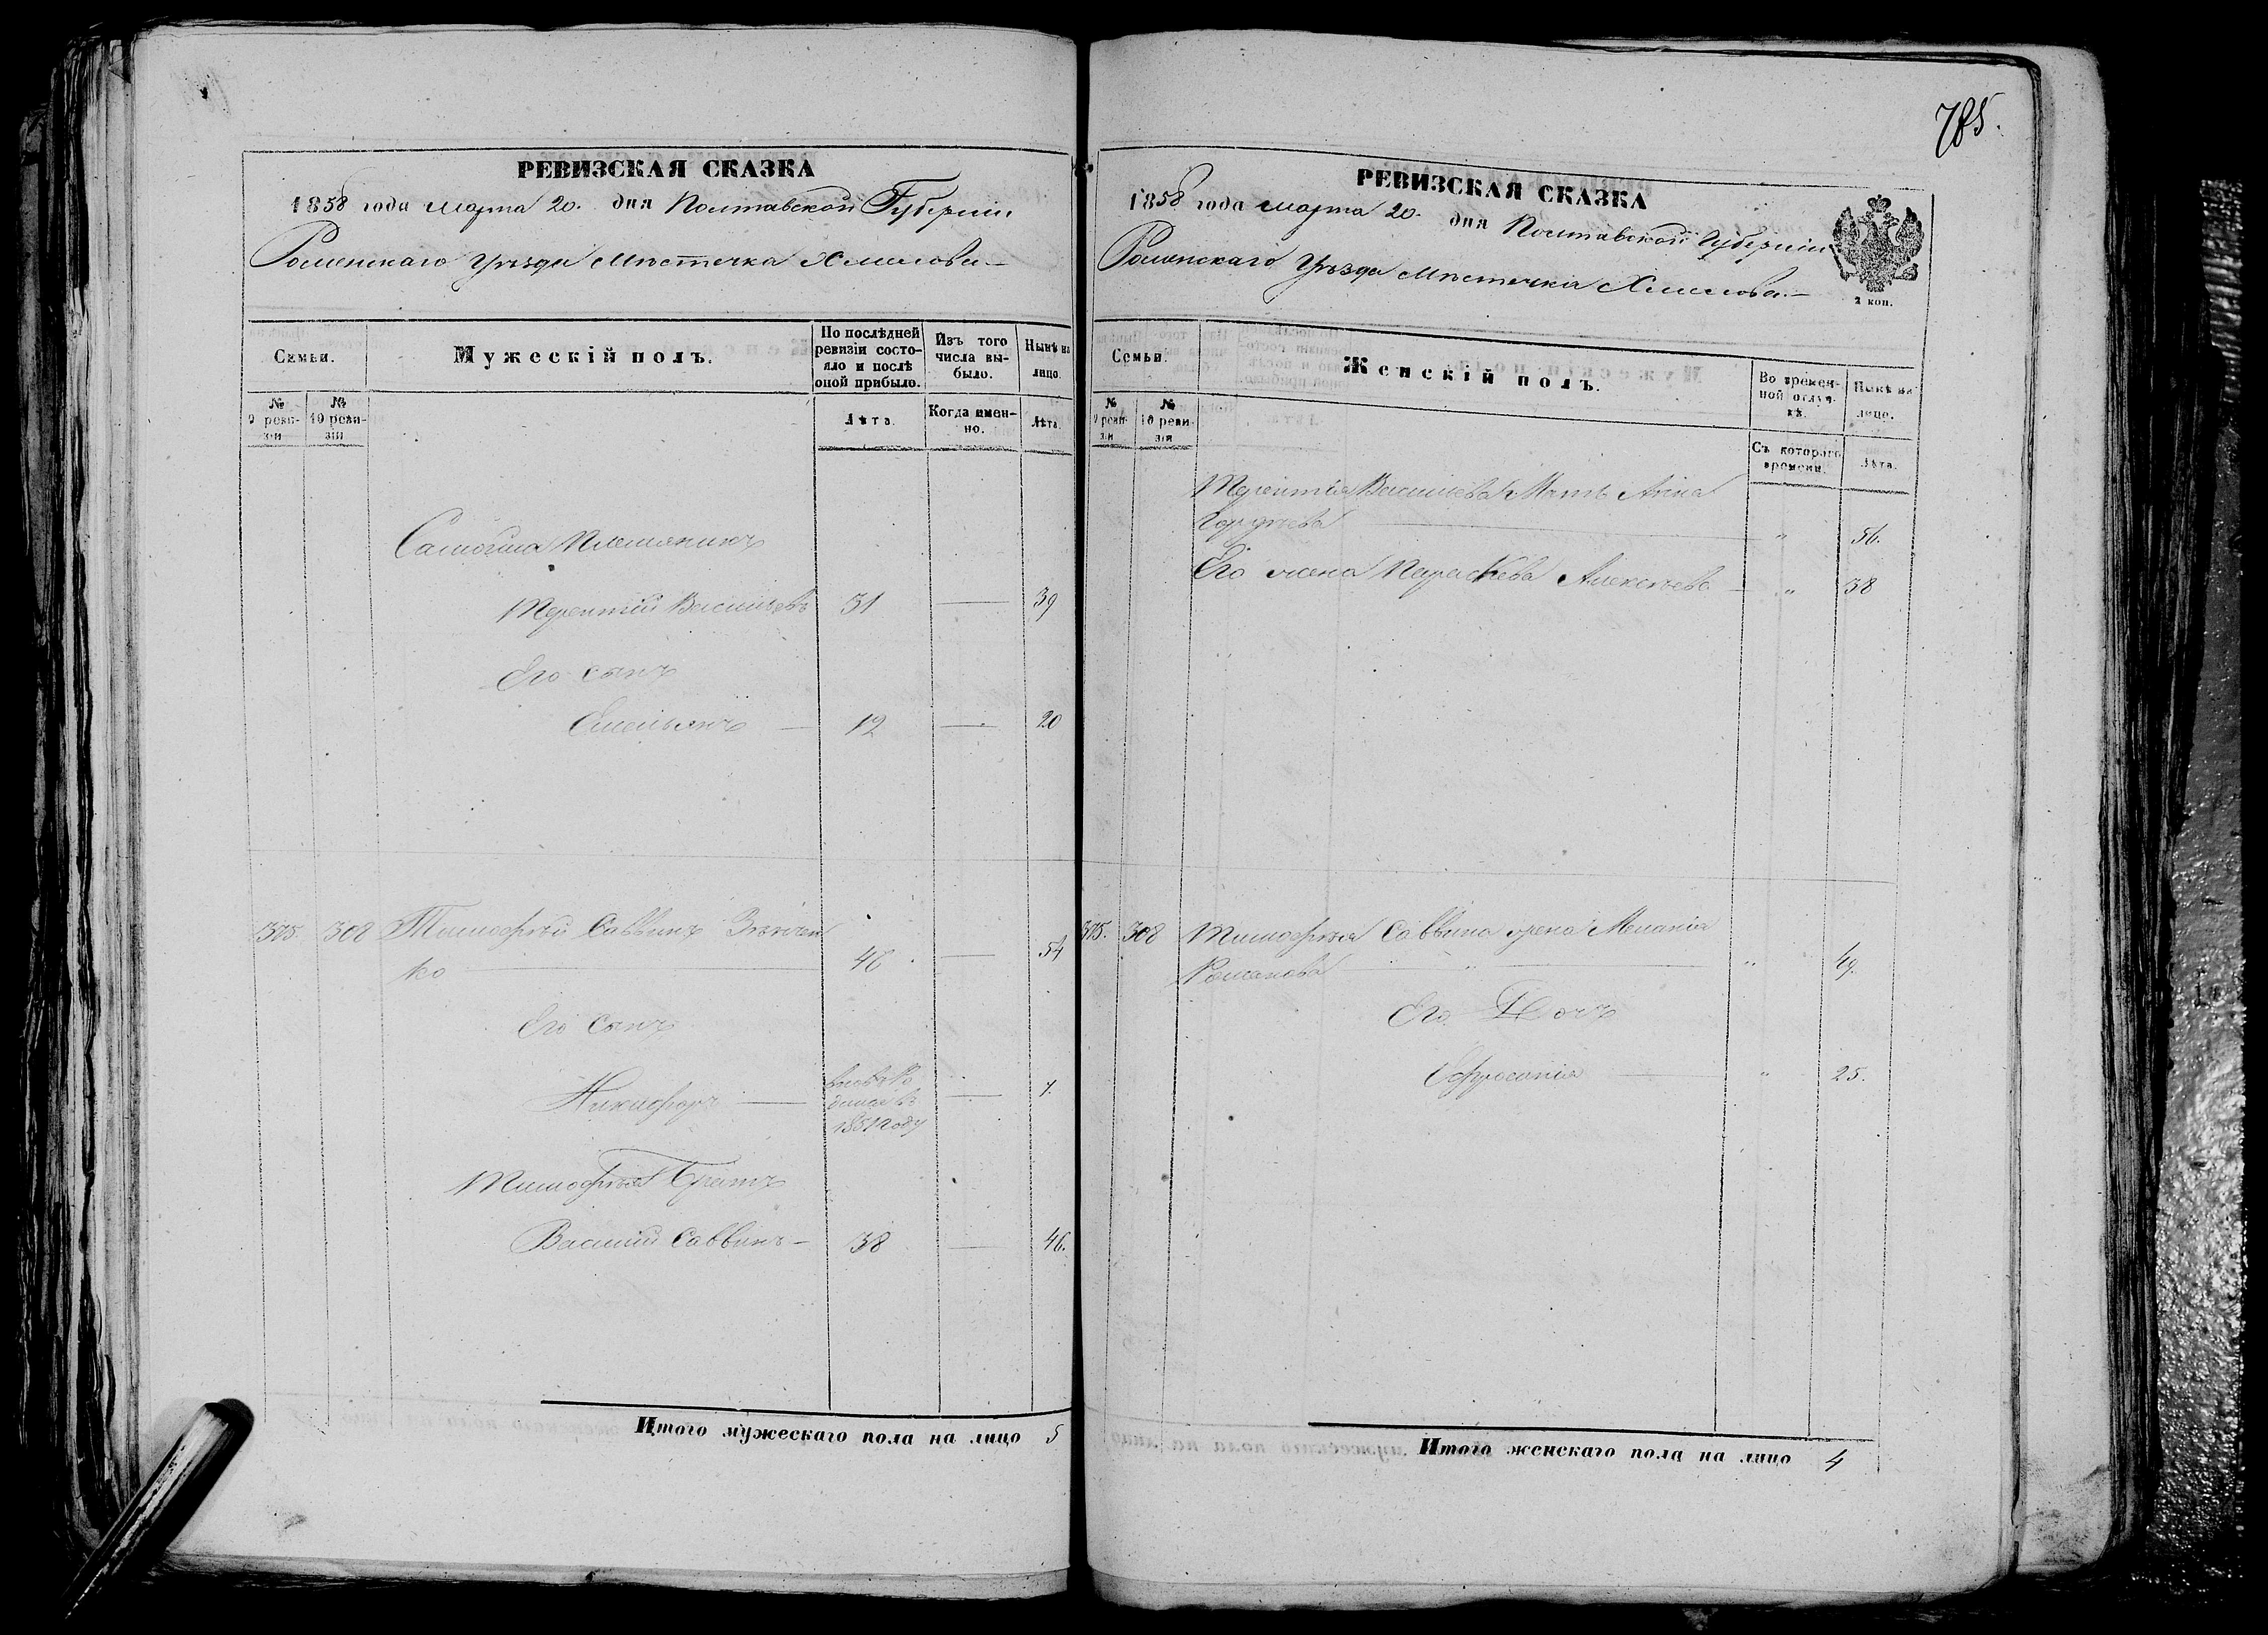 785.
РЕВИЗСКАЯ СКАЗКА
1858 года марта 20. дня Полтавской Губерніи
Роменскаго Уѣзда Мѣстечка Хмелова
Семьи.
Мужескій полъ.
По послѣдней ревизіи состояло и послѣ оной прибыло.
Изъ того числа выбыло.
Нынѣ на лицо.
№ 9 ревизіи
№ 10 ревизіи
Лѣта.
Когда именно.
Лѣта.
Самойла Племянникъ
Терентій Васильевъ 31 — 39
Его сынъ
Емельянъ — 12 — 20
375. 308 Тимофѣй Саввинъ
ко — 46 — 54
Его сынъ
Никифоръ — 7.
1851 году
Тимофѣя Братъ
Василій Саввинъ — 38 — 46.
Итого мужескаго пола на лицо 5
РЕВИЗСКАЯ СКАЗКА
1858 года марта 20. дня Полтавской Губерніи
Роменскаго Уѣзда Мѣстечка Хмелова.
2 коп.
Семьи.
Женскій полъ.
Во временной отлучкѣ.
Нынѣ на лицо.
№ 9 ревизіи
№ 10 ревизіи
Съ котораго времени.
Лѣта.
Терентія Васильева Мать Анна
" 56.
Его жена Параскева Алексѣева — " 38
375. 308 Тимофѣя Саввина жена Меланія
Романова — " 49.
Его Дочь
Ефросинія — " 25.
Итого женскаго пола на лицо 4